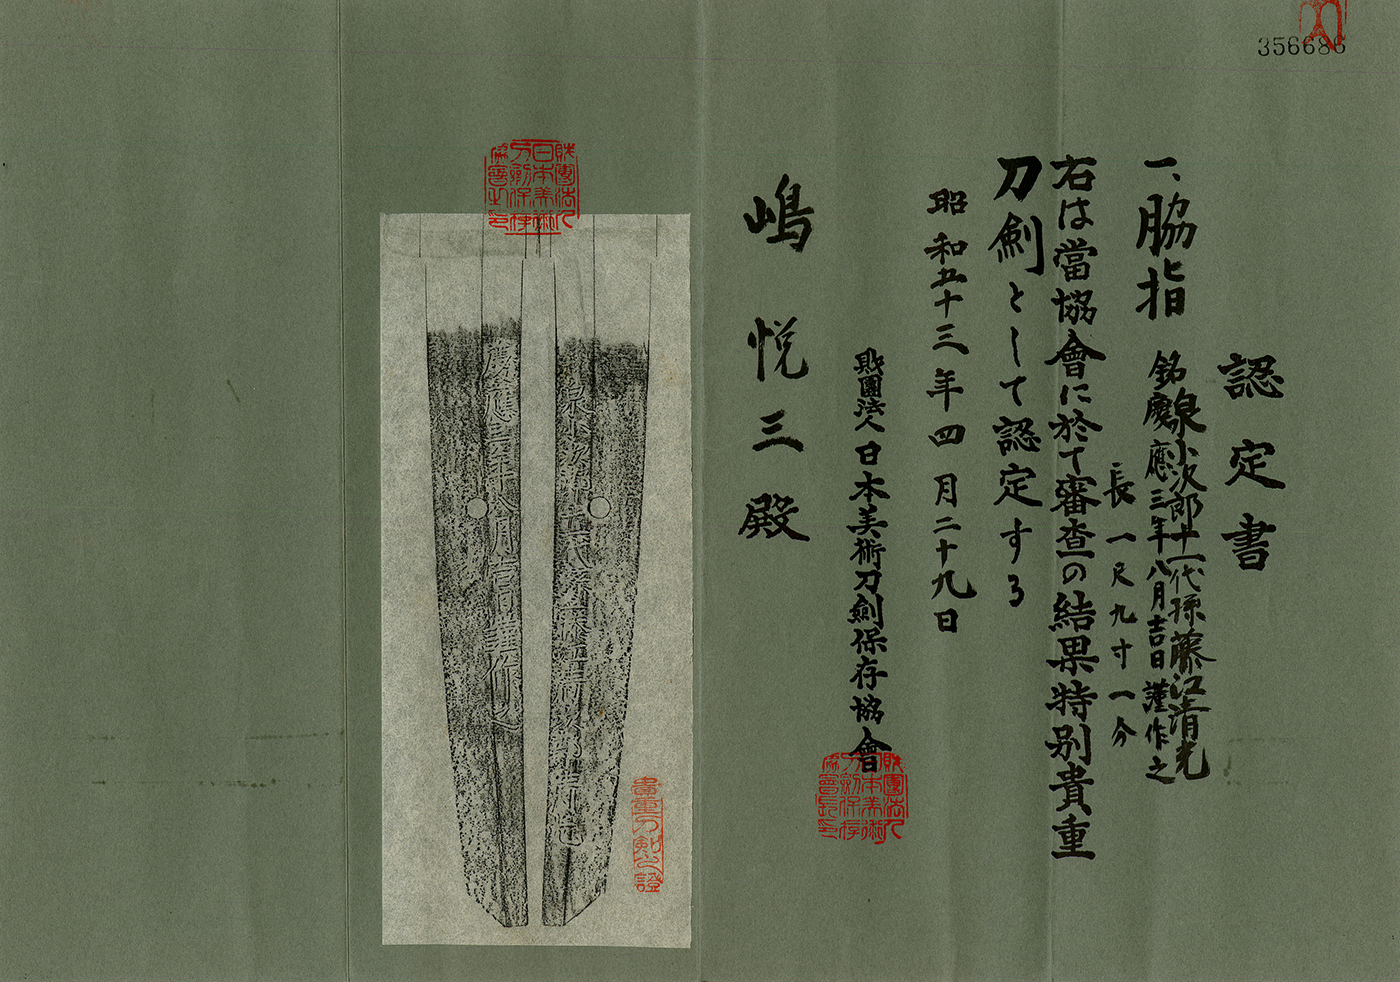 356686
認定書
一、脇指
銘 泉小次郎十一代孫藤江清光
慶應三年八月吉日謹作之
長 一尺九寸一分
右は當協會に於て審査の結果特別貴重
刀劍として認定する
昭和五十三年四月二十九日
財團法人日本美術刀劍保存協會
嶋悦三殿
財團法人日本美術刀劍保存協會長之印
貴重刀剣之證